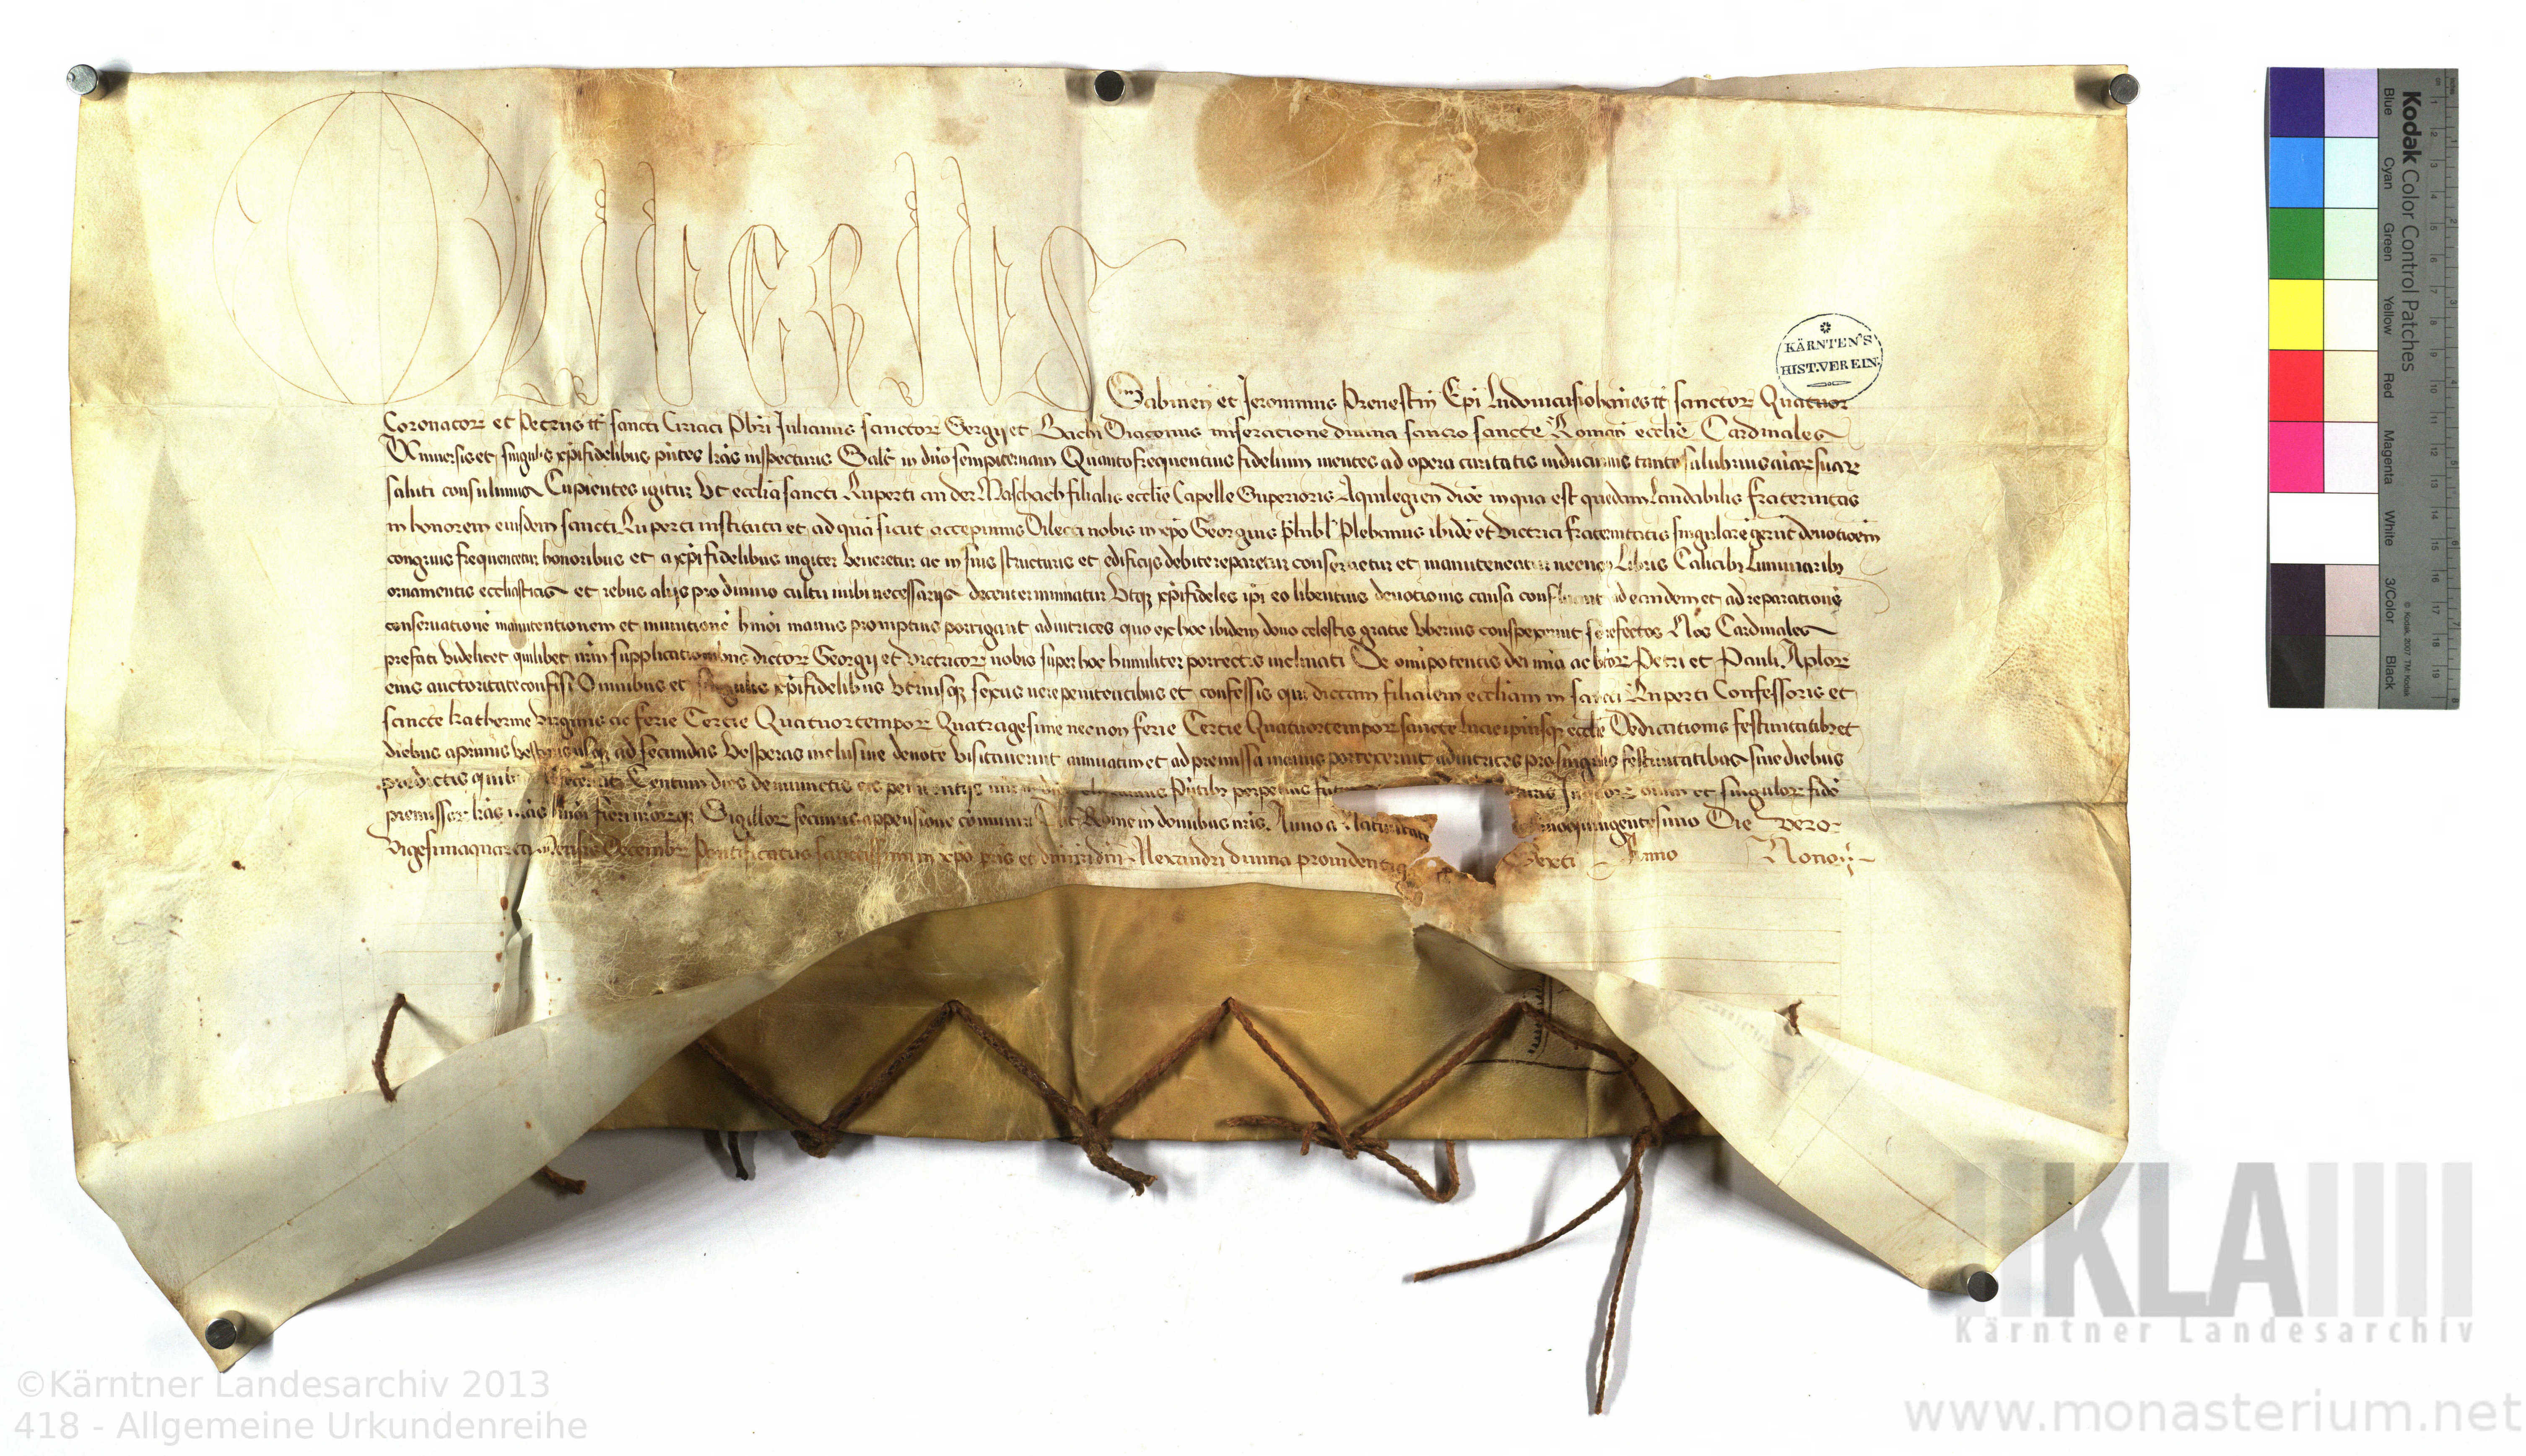 OLIUERIUS
Sabinen et Jeronimus Prenestin Epi Ludouicus Johannes tt sanctor Quatuor
Coronator et Petrus tt sancti Ciriaci Pbri Julianus sanctor Sergij et Bachi Diaconus miseracione diuina sacro sancte Roman ecclie Cardinales
Uniuersis et singulis xpifidelibus pntes lras inspecturis Salt in dno sempiternam Quanto frequentius fidelium mentes ad opera caritatis inducimus tanto salubrius aiar suar
saluti consulimus Cupientes igitur Ut ecclia sancti Ruperti an der Maschach filialis ecclie Capelle Superioris Aquilegien dioc in qua est quedam laudabilis fraternitas
in honorem eiusdem sancti Ruperti instituta et ad qua sicut accepimus Dilecti nobis in xpo Georgius Plebanus ibide et Victrici fraternitatis singulare gerut deuotioem
congruis frequentetur honoribus et a xpifidelibus iugiter veneretur ac in suis structuris et edificijs debite reparetur conseruetur et manuteneatur necnon Libris Calicibz Luminaribz
ornamentis ecclasticis et rebus alijs pro diuino cultu inibi necessarijs decenter muniatur Utqz xpifideles ipi eo libentius deuotionis causa confluant ad eandem et ad reparatione
conseruatione manutentionem et munitione hmoi manus promptius porrigant adiutrices quo ex hoc ibidem dono celestis gratie vberius conspexerint se refectos Nos Cardinales
prefati videlicet quilibet nrm supplicationibus dictor Georgij et victricor nobis super hoc humiliter porrectis inclinati De omipotentis dei mia ac btor Petri et Pauli Aplor
eius auctoritate confisi Omnibus et singulis xpifidelibus vtriusqz sexus vere penitentibus et confessis qui dictam filialem eccliam in sancti Ruperti Confessoris et
sancte Katherine virginis ac ferie Tercie Quatuortempor Quatragesime necnon ferie Tercie Quatuortempor sancte Lucie ipiusqz ecclie Dedicationis festiuitatibz et
diebus a primis vesperis usqz ad secundas vesperas inclusiue deuote visitauerint annuatim et ad premissa manus porrexerint adiutrices pro singulis festiuitatibus siue diebus
predictis quibz id fecerint Centum dies de iniunctis eis penitentijs Pntibz perpetuis orum et singulor fide
premissor lras nras hmoi fieri nrorqz Sigillor fecimus appensione comuniri Dat Rome in domibus nris Anno a Natiuitate quingentesimo Die vero
vigesimaquarta Mensis Decembr Pontificatus sanctissimi in xpo pris et dni nri dni Alexandri diuina prouidentia Sexti Anno Nono
KÄRNTEN'S
HIST.VEREIN.
Kodak Color Control Patches
Blue Cyan Green Yellow Red Magenta White 3/Color Black
© Kodak, 2007 TM: Kodak
KLA
Kärntner Landesarchiv
©Kärntner Landesarchiv 2013
418 - Allgemeine Urkundenreihe
www.monasterium.net